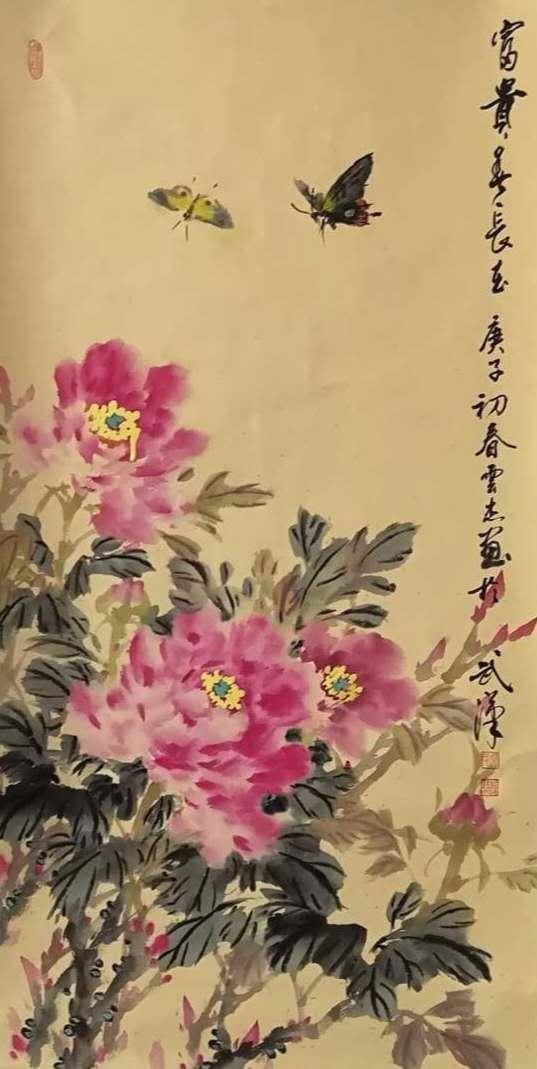 富貴春長在 庚子初春雲杰畫於武漢